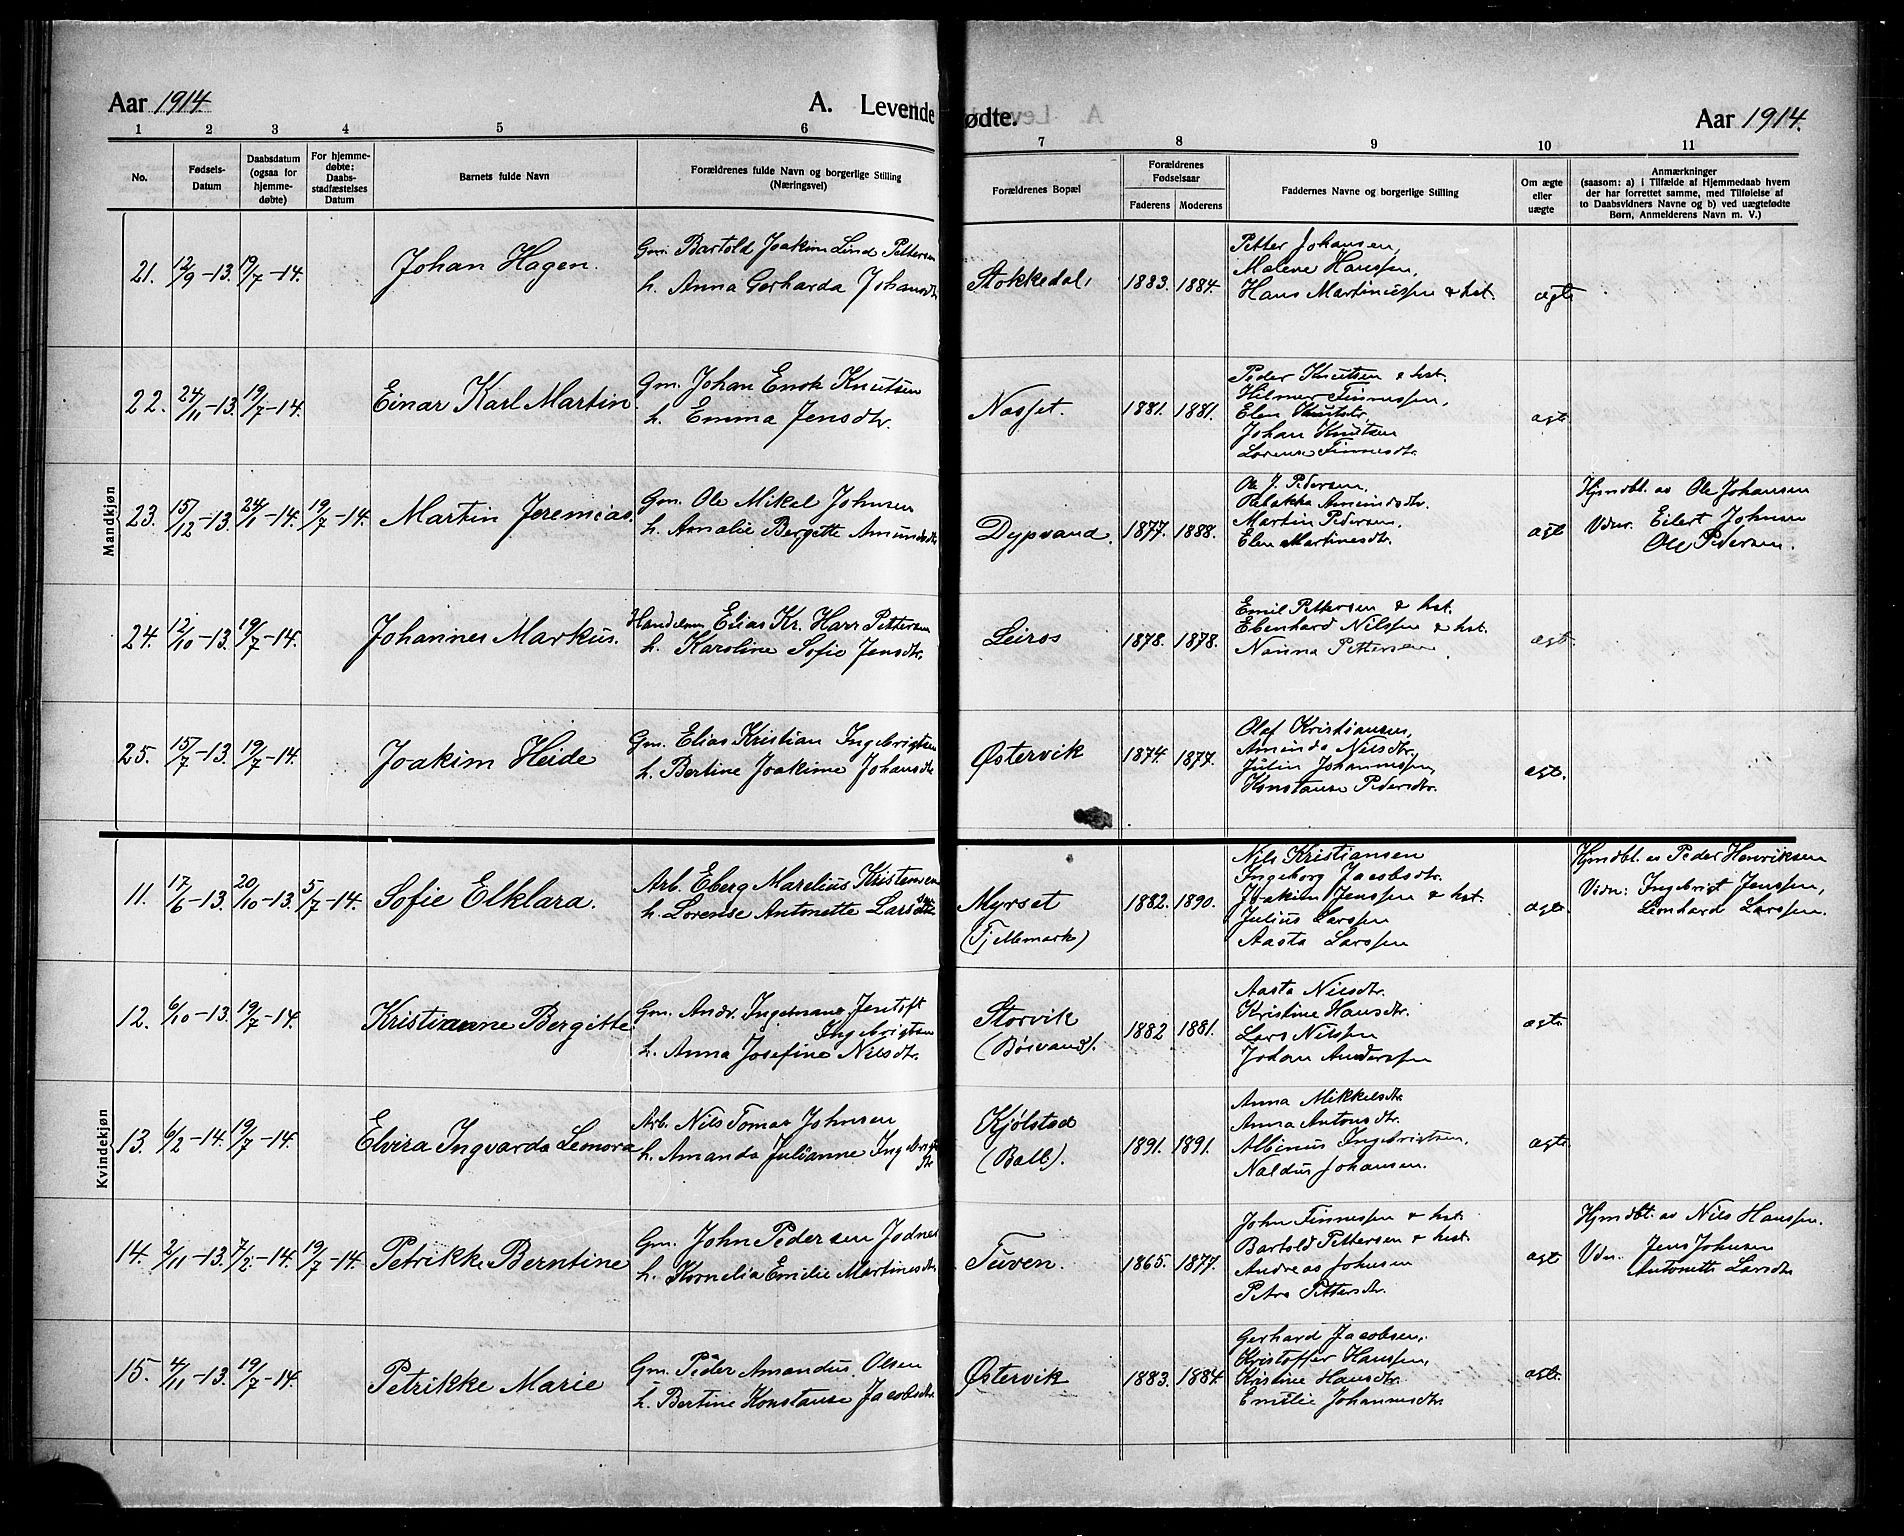 Aar 1914
A. Levende
fødte.
Aar 1914.
1 2 3 4 5 6
7 8 9 10 11
No.
Fødsels-
Datum
Daabsdatum
(ogsaa for
hjemme-
døbte)
For hjemme-
døbte:
Daabs-
stadfæstelses
Datum
Barnets fulde Navn
Forældrenes fulde Navn og borgerlige Stilling
(Næringsvei)
Forældrenes Bopæl
Forældrenes
Fødselsaar
Faderens Moderens
Faddernes Navne og borgerlige Stilling
Om ægte
eller
uægte
Anmærkninger
(saasom: a) i Tilfælde af Hjemmedaab hvem
der har forrettet samme, med Tilføielse af
to Daabsvidners Navne og b) ved uægtefødte
Børn, Anmelderens Navn m. V.)
Mandkjøn
21. 12/9-13. 19/7-14. Johan Hagen.
Gm. Bartold Joakim Lind Pettersen
h. Anna Gerharda Johansdtr
Stokkedal, 1883. 1884.
Petter Johansen,
Malene Hanssen,
Hans Martinussen & hst.
ægte
22. 24/11-13. 19/7-14. Einar Karl Martin
Gm. Johan Enok Knutsen
h. Emma Jensdtr.
Nosset. 1881. 1881.
Peder Knutsen & hst.
Hilmer Finnessen,
Elen Knutsdtr.
Johan Knutsen
Lorense Finnesdtr.
ægte
23. 15/12-13. 24/1-14. 19/7-14. Martin Jeremias.
Gm. Ole Mikal Johnsen
h. Amalie Bergette Amundsdtr
Dypvand. 1877. 1888.
Ole J. Pedersen.
Rebekka Amundsdtr.
Martin Pedersen.
Elen Martinesdtr.
ægt
Hjmdbt. av Ole Johansen
Vdnr. Eilert Johnsen
Ole Pedersen.
24. 12/10-13. 19/7-14. Johannes Markus.
Handelsm Elias Kr. Harr Pettersen
h. Karoline Sofie Jensdtr.
Leiros 1878. 1878.
Emil Pettersen & hst.
Ebenhard Nilssen & hst.
Nanna Pettersen.
ægt.
25. 15/7-13. 19/7-14. Joakim Heide
Gm. Elias Kristian Ingebrigtsen
h. Bertine Joakime Johansdtr
Østervik 1874. 1877.
Olaf Kristiansen,
Aminda Nilsdtr.,
Julin Johannessen,
Konstanse Pedersdtr.
ægt.
Kvindekjøn
11. 17/6-13. 20/10-13. 5/7-14. Sofie Elklara.
Arb. Eberg Marelius Kristensen
h. Lorense Antonette Larsdtr
Myrset
(Tjellemark)
1882. 1890.
Nils Kristiansen
Ingeborg Jacobsdtr.
Joakim Jenssen & hst.
Julius Larssen
Aasta Larssen
ægte
Hjmdbt. av Peder Henriksen
Vidn: Ingebrigt Jenssen,
Leonhard Larssen.
12. 6/10-13. 19/7-14. Kristianne Bergitte
Gm. Andr. Ingemann Jentoft
Ingebrigtsen
h. Anna Josefine Nilsdtr.
Storvik
(Bøsvand).
1882 1881.
Aasta Nilsdtr.
Kristine Hansdtr.
Lars Nilssen
Jodan Anderssen
ægte
13. 6/2-14. 19/7-14. Elvira Ingvarda Leonora
Arb. Nils Tomas Johnsen
h. Amanda Julianne Ingebrigts
dtr
Kjølstad
(Ball).
1891. 1891.
Anna Mikkelsdtr
Anna Antonsdtr.
Albinus Ingebrigtsen.
Naldus Johansen.
ægte
14. 2/11-13. 7/2-14. 19/7-14. Petrikke Berntine
Gm. John Pedersen Jodnes
h. Kornelia Emilie Martinesdtr
Tuven. 1865. 1877.
John Finnessen & hst.
Bartold Pettersen & hst.
Andreas Johnsen
Petra Pettersdtr.
ægt
Hjmdbt. av Nils Hanssen.
Vdn. Jens Johnsen
Antonette Larsdtr
15. 4/11-13. 19/7-14. Petrikke Marie
Gm. Peder Amandus Olsen
h. Bertine Konstanse Jacobsdtr
Østervik 1883. 1884.
Gerhard Jacobsen,
Kristoffer Hanssen,
Kristine Hansdtr.
Emilie Johannesdtr
ægte